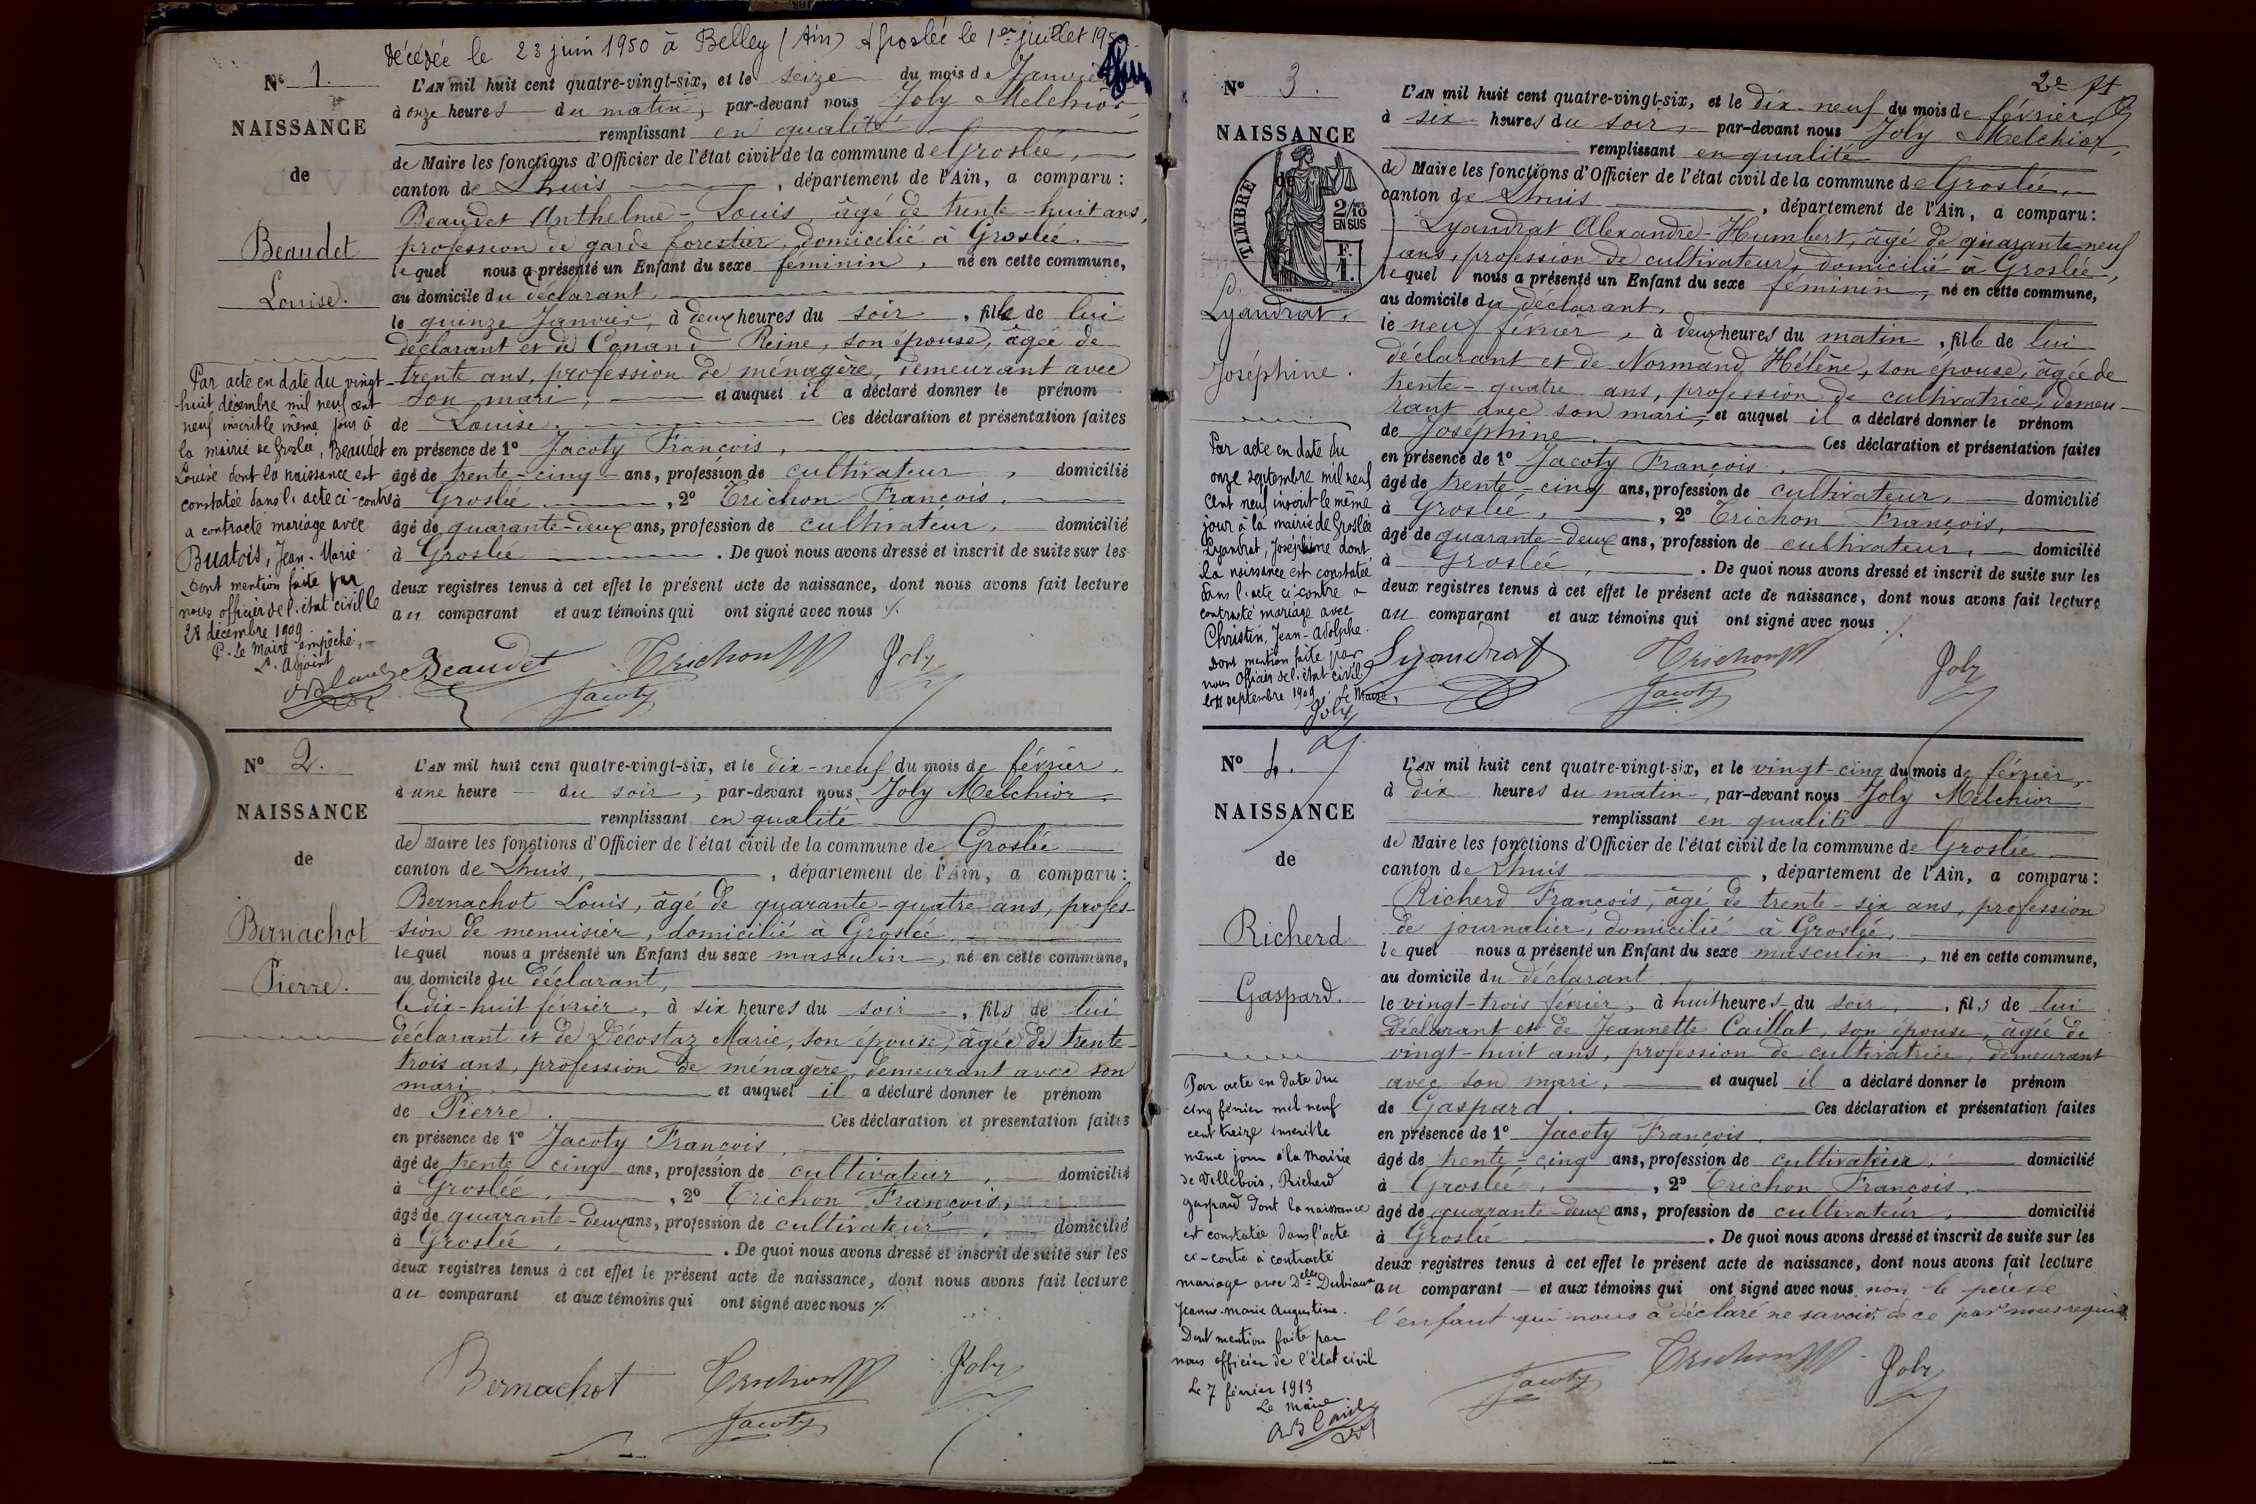 Décédée le 23 juin 1950 à Belley (Ain) Groslée le 1er juillet 195
N° 1.
NAISSANCE
de
Beaudet
Louise.
Par acte en date du vingt-
huit décembre mil neuf cent
neuf inscrit le même jour à
la mairie de Groslée, Beaudet
Louise dont la naissance est
constatée dans l'acte ci-contre
a contracté mariage avec
Buatois, Jean-Marie
Dont mention faite par
nous officier de l'état civil le
28 décembre 1909.
P. le Maire empêché,
L'Adjoint
L'AN mil huit cent quatre-vingt-six, et le seize du mois de Janvier
à onze heures du matin, par-devant nous Joly Melchior,
remplissant en qualité
de Maire les fonctions d'Officier de l'état civil de la commune de Groslée,
canton de Lhuis, département de l'Ain, a comparu :
Beaudet Anthelme-Louis, âgé de trente-huit ans,
profession de garde forestier, domicilié à Groslée.
lequel nous a présenté un Enfant du sexe féminin, né en cette commune,
au domicile du déclarant,
le quinze Janvier, à deux heures du soir, fille de lui
déclarant et de Conand Reine, son épouse, âgée de
trente ans, profession de ménagère, demeurant avec
son mari, et auquel il a déclaré donner le prénom
de Louise. Ces déclaration et présentation faites
en présence de 1° Jacoty François,
âgé de trente-cinq ans, profession de cultivateur, domicilié
à Groslée, 2° Trichon François,
âgé de quarante-deux ans, profession de cultivateur, domicilié
à Groslée. De quoi nous avons dressé et inscrit de suite sur les
deux registres tenus à cet effet le présent acte de naissance, dont nous avons fait lecture
au comparant et aux témoins qui ont signé avec nous ./.
Beaudet Trichon Joly
Jacoty
N° 2.
NAISSANCE
de
Bernachot
Pierre.
L'AN mil huit cent quatre-vingt-six, et le dix-neuf du mois de février
à une heure du soir, par-devant nous Joly Melchior,
remplissant en qualité
de Maire les fonctions d'Officier de l'état civil de la commune de Groslée
canton de Lhuis, département de l'Ain, a comparu :
Bernachot Louis, âgé de quarante-quatre ans, profes-
sion de menuisier, domicilié à Groslée,
lequel nous a présenté un Enfant du sexe masculin, né en cette commune,
au domicile du déclarant,
le dix-huit février, à six heures du soir, fils de lui
déclarant et de Décostaz Marie, son épouse, âgée de trente-
trois ans, profession de ménagère, demeurant avec son
mari, et auquel il a déclaré donner le prénom
de Pierre. Ces déclaration et présentation faites
en présence de 1° Jacoty François,
âgé de trente cinq ans, profession de cultivateur, domicilié
à Groslée, 2° Trichon François,
âgé de quarante-deux ans, profession de cultivateur, domicilié
à Groslée, . De quoi nous avons dressé et inscrit de suite sur les
deux registres tenus à cet effet le présent acte de naissance, dont nous avons fait lecture
au comparant et aux témoins qui ont signé avec nous ./.
Bernachot Trichon Joly
Jacoty
2e
N° 3.
NAISSANCE
de
TIMBRE
2/10 EN SUS
Lyandrat.
Joséphine.
Par acte en date du
onze septembre mil neuf
cent neuf inscrit le même
jour à la mairie de Groslée
Lyandrat, Joséphine dont
la naissance est constatée
dans l'acte ci-contre a
contracté mariage avec
Christin, Jean-Adolphe.
Dont mention faite par
nous officier de l'état civil
le 11 septembre 1909. Le Maire,
Joly
L'AN mil huit cent quatre-vingt-six, et le dix-neuf du mois de février,
à six heures du soir, par-devant nous Joly Melchior,
remplissant en qualité
de Maire les fonctions d'Officier de l'état civil de la commune de Groslée,
canton de Lhuis, département de l'Ain, a comparu :
Lyandrat Alexandre-Humbert, âgé de quarante-neuf
ans, profession de cultivateur, domicilié à Groslée,
lequel nous a présenté un Enfant du sexe féminin, né en cette commune,
au domicile du déclarant,
le neuf février, à deux heures du matin, fille de lui
déclarant et de Normand Hélène, son épouse, âgée de
trente-quatre ans, profession de cultivatrice, demeu-
rant avec son mari, et auquel il a déclaré donner le prénom
de Joséphine. Ces déclaration et présentation faites
en présence de 1° Jacoty François,
âgé de trente-cinq ans, profession de cultivateur, domicilié
à Groslée, 2° Trichon François,
âgé de quarante-deux ans, profession de cultivateur, domicilié
à Groslée, . De quoi nous avons dressé et inscrit de suite sur les
deux registres tenus à cet effet le présent acte de naissance, dont nous avons fait lecture
au comparant et aux témoins qui ont signé avec nous ./.
Lyandrat Trichon Joly
Jacoty
N° 4.
NAISSANCE
de
Richerd
Gaspard.
Par acte en date du
cinq février mil neuf
cent treize inscrit le
même jour à la Mairie
de Villebois, Richerd
Gaspard dont la naissance
est constatée dans l'acte
ci-contre a contracté
mariage avec Delle
Jeanne-Marie Augustine.
Dont mention faite par
nous officier de l'état civil
Le 7 février 1913
Le Maire
L'AN mil huit cent quatre-vingt-six, et le vingt-cinq du mois de février,
à dix heures du matin, par-devant nous Joly Melchior
remplissant en qualité
de Maire les fonctions d'Officier de l'état civil de la commune de Groslée
canton de Lhuis, département de l'Ain, a comparu :
Richerd François, âgé de trente-six ans, profession
de journalier, domicilié à Groslée,
lequel nous a présenté un Enfant du sexe masculin, né en cette commune,
au domicile du déclarant
le vingt-trois février, à huit heures du soir, fils de lui
déclarant et de Jeannette Caillat, son épouse, âgée de
vingt-huit ans, profession de cultivatrice, demeurant
avec son mari, et auquel il a déclaré donner le prénom
de Gaspard. Ces déclaration et présentation faites
en présence de 1° Jacoty François,
âgé de trente-cinq ans, profession de cultivateur, domicilié
à Groslée, 2° Trichon François,
âgé de quarante-deux ans, profession de cultivateur, domicilié
à Groslée. De quoi nous avons dressé et inscrit de suite sur les
deux registres tenus à cet effet le présent acte de naissance, dont nous avons fait lecture
au comparant et aux témoins qui ont signé avec nous non le père de
l'enfant qui nous a déclaré ne savoir de ce par nous requis
Trichon Joly
Jacoty